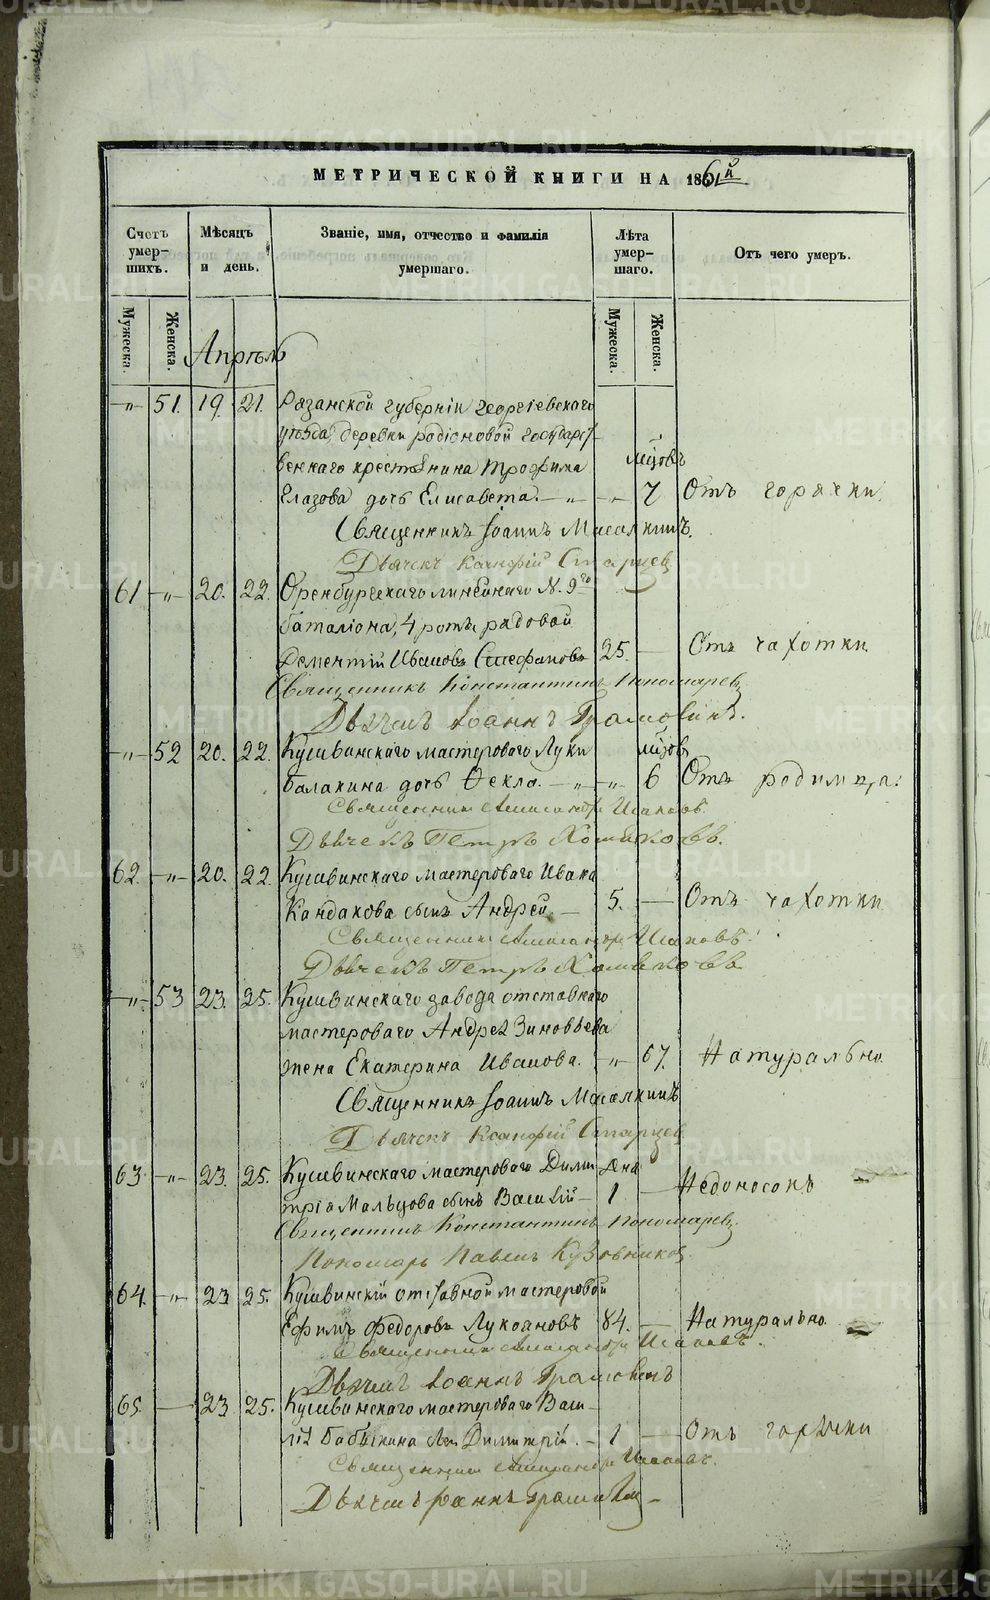 МЕТРИЧЕСКОЙ КНИГИ НА 1861й
Счетъ умер-шихъ.
Мѣсяцъ и день.
Званіе, имя, отчество и фамилія умершаго.
Лѣта умер-шаго.
Отъ чего умеръ.
Мужеска. Женска. Мужеска. Женска.
Апрѣль
„ 51. 19. 21. Рязанской губерніи Георгіевскаго
уѣзда, деревни Родіоновой Государс-
веннаго крестьянина Трофима мцовъ
Глазова дочь Елисавета. „ „ 7 Отъ горячки.
Священникъ Іоаннъ Масалкинъ.
Дьячекъ Ксанфій Старцев
61 „ 20. 22. Оренбургскаго линейнаго N. 9го
баталіона, 4 роты рядовой
Дементій Ивановъ Стефановъ 25. Отъ чахотки.
Священникъ Константинъ Пономарев
Дьячекъ Іоаннъ
„ 52 20. 22. Кушвинскаго мастероваго Луки мцовъ
Балакина дочь Фекла. „ „ 6 Отъ родимца.
Священник Александръ Исаковъ.
Дьячекъ Петръ Хомяковъ.
62. „ 20. 22. Кушвинскаго мастероваго Ивана
Кандакова сынъ Андрей. 5. Отъ чахотки
Священник Александръ Исаковъ.
Дьячекъ Петръ Хомяковъ
„ 53 23. 25. Кушвинскаго завода отставнаго
мастероваго Андрея Зиновьева
жена Екатерина Иванова. „ 67. Натурально.
Священникъ Іоаннъ Масалкинъ
Дьячекъ Ксанфій Старцев
63 „ 23. 25. Кушвинскаго мастероваго Дими- дня
трія Мальцова сынъ Василій 1 Недоносокъ
Священникъ Константинъ Пономарев
Пономарь Павелъ Кузовников
64. „ 23 25. Кушвинскій отставной мастеровой
Ефимъ Федоровъ Лукояновъ 84. Натурально.
Священник Александръ Исаковъ.
Дьячекъ Іоаннъ
65. 23 25. Кушвинскаго мастероваго Васи-
лія Бабкина Димитрій. 1 Отъ горячки
Священник Александръ Исаковъ.
Дьячекъ Іоаннъ
METRIKI.GASO-URAL.RU